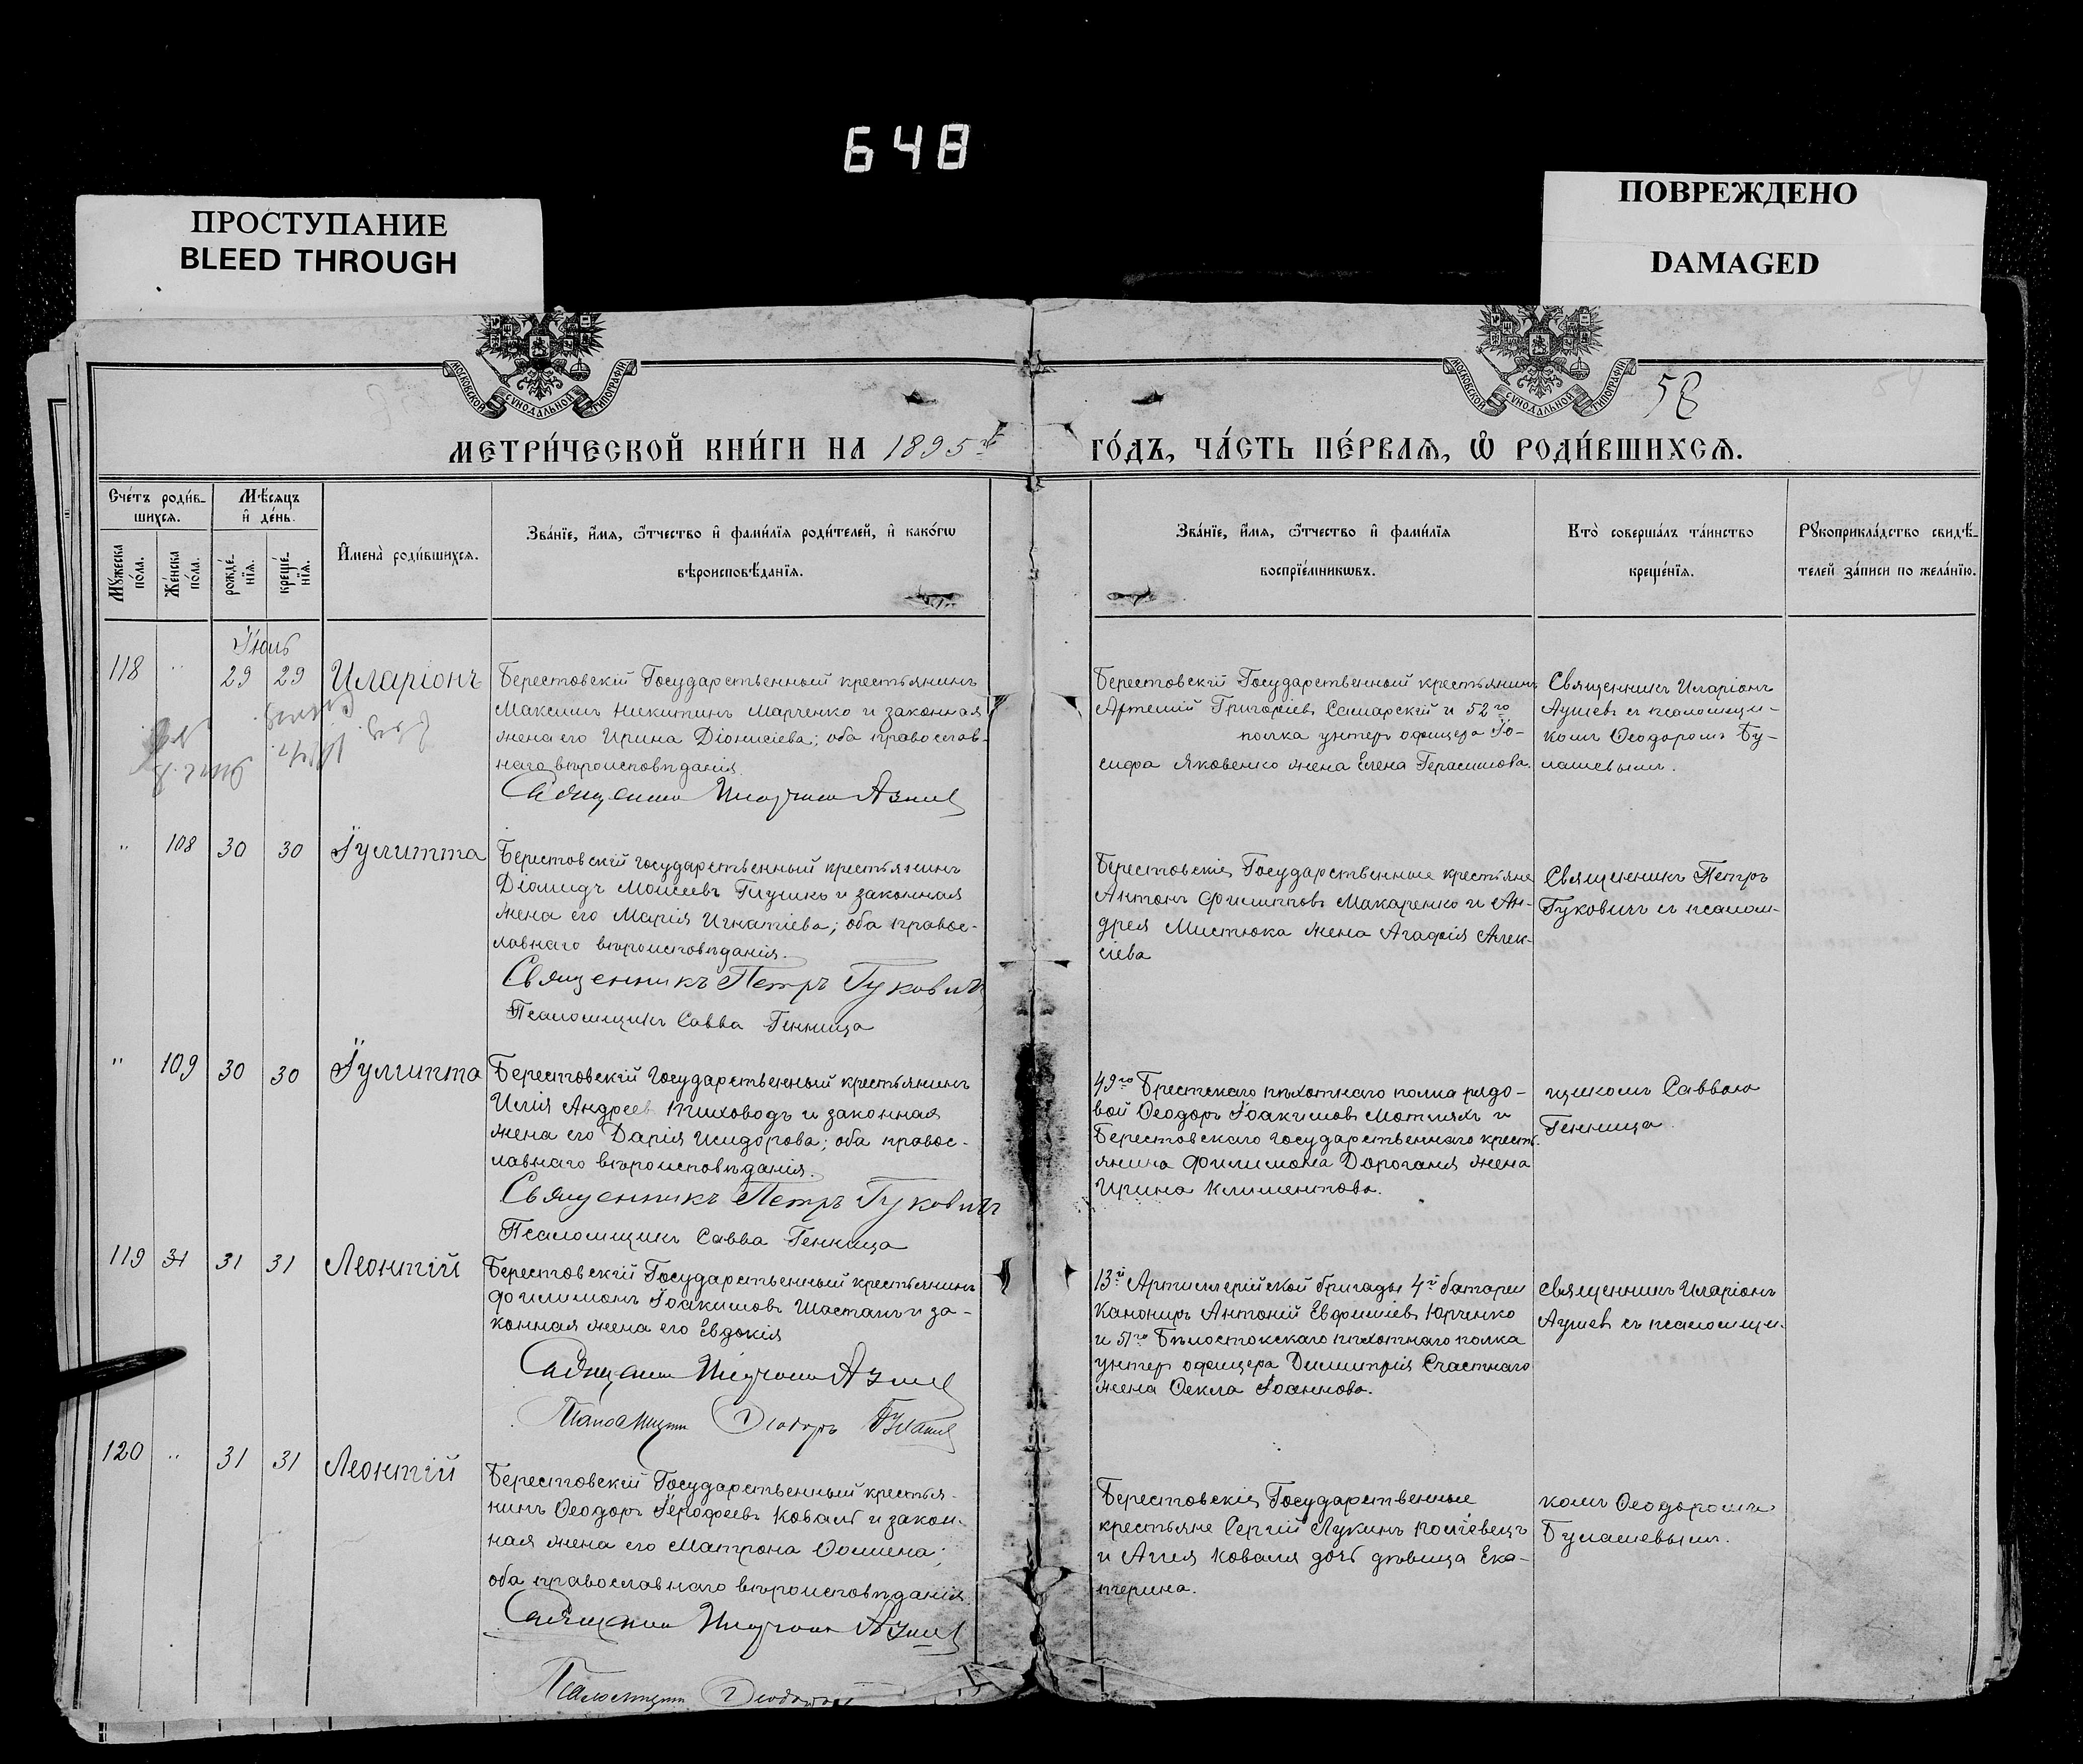 648
ПРОСТУПАНИЕ
BLEED THROUGH
ПОВРЕЖДЕНО
DAMAGED
МОСКОВСКОЙ СѴНОДАЛЬНОЙ ТИПОГРАФІИ.
МОСКОВСКОЙ СѴНОДАЛЬНОЙ ТИПОГРАФІИ.
58
МЕТРИ́ЧЕСКОЙ КНИ́ГИ НА 1895й
ГО́ДЪ, ЧА́СТЬ ПЕ́РВАѦ, Ѽ РОДИ́ВШИХСѦ.
Сче́тъ роди́в-
шихсѧ.
Мѣ́сѧцъ
и҆ де́нь.
Мꙋ́жеска по́ла.
Же́нска по́ла.
рожде́нїѧ.
креще́нїѧ.
И҆мена̀ роди́вшихсѧ.
Зва́нїе, и҆́мѧ, ѻ҆́тчество и҆ фами́лїѧ роди́телей, и҆ како́гѡ
вѣроисповѣ́данїѧ.
Зва́нїе, и҆́мѧ, ѻ҆́тчество и҆ фами́лїѧ
воспрїе́мникѡвъ.
Кто̀ соверша́лъ та́инство
креще́нїѧ.
Рꙋкоприкла́дство свидѣ́-
телей за́писи по жела́нїю.
Іюль
118 " 29 29 Иларіонъ
Берестовскій Государственный крестьянинъ
Максимъ Никитинъ Марченко и законная
жена его Ирина Діонисіева; оба православ-
наго вѣроисповѣданія.
Священникъ Иларіонъ Ауцев
Берестовскій Государственный крестьянинъ
Артемій Григоріевъ Самарскій и 52го
полка унтеръ офицера Іо-
сифа Яковенко жена Елена Герасимова.
Священникъ Иларіонъ
Ауцевъ съ псаломщи-
комъ Ѳеодоромъ Бу-
лашевымъ.
" 108 30 30 Іулитта
Берестовскій государственный крестьянинъ
Діомидъ Моисеевъ Глушко и законная
жена его Марія Игнатіева; оба правос-
лавнаго вѣроисповѣданія.
Священникъ Петръ Гуковичъ
Псаломщикъ Савва Генница
Берестовскіе Государственные крестьяне
Антонъ Филипповъ Макаренко и Ан-
дрея Мистюка жена Агафія Алек-
сіева
Священникъ Петръ
Гуковичъ съ псалом-
" 109 30 30 Іулитта
Берестовскій Государственный крестьянинъ
Илія Андреев Тиховодъ и законная
жена его Дарія Исидорова; оба правос-
лавнаго вѣроисповѣданія.
Священникъ Петръ Гуковичъ
Псаломщикъ Савва Генница
49го Брестскаго пѣхотнаго полка рядо-
вой Ѳеодоръ Іоакимовъ Мотляхъ и
Берестовскаго государственнаго кресть-
янина Филимона Дороганя жена
Ирина Климентова.
щикомъ Саввою
Генница.
119 31 31 31 Леонтій
Берестовскій Государственный крестьянинъ
Филимонъ Іоакимовъ Шастакъ и за-
конная жена его Евдокія
Священникъ Иларіонъ Ауцев
Псаломщикъ Ѳеодоръ Булашев
13й Артиллерійской бригады 4й батареи
Канониръ Антоній Евфиміевъ Юрченко
и 51го Бѣлостокскаго пѣхотнаго полка
унтеръ офицера Димитрія Счастнаго
жена Ѳекла Іоаннова.
священникъ Иларіонъ
Ауцевъ съ псаломщи-
120 " 31 31 Леонтій
Берестовскій Государственный крестья-
нинъ Ѳеодоръ Іерофеевъ Коваль и закон-
ная жена его Матрона Ѳомина;
оба православнаго вѣроисповѣданія.
Священникъ Иларіонъ Ауцев
Псаломщикъ Ѳеодоръ
Берестовскіе Государственные
крестьяне Сергій Лукинъ
и Коваля дочь дѣвица Ека-
терина.
комъ Ѳеодоромъ
Булашевымъ.